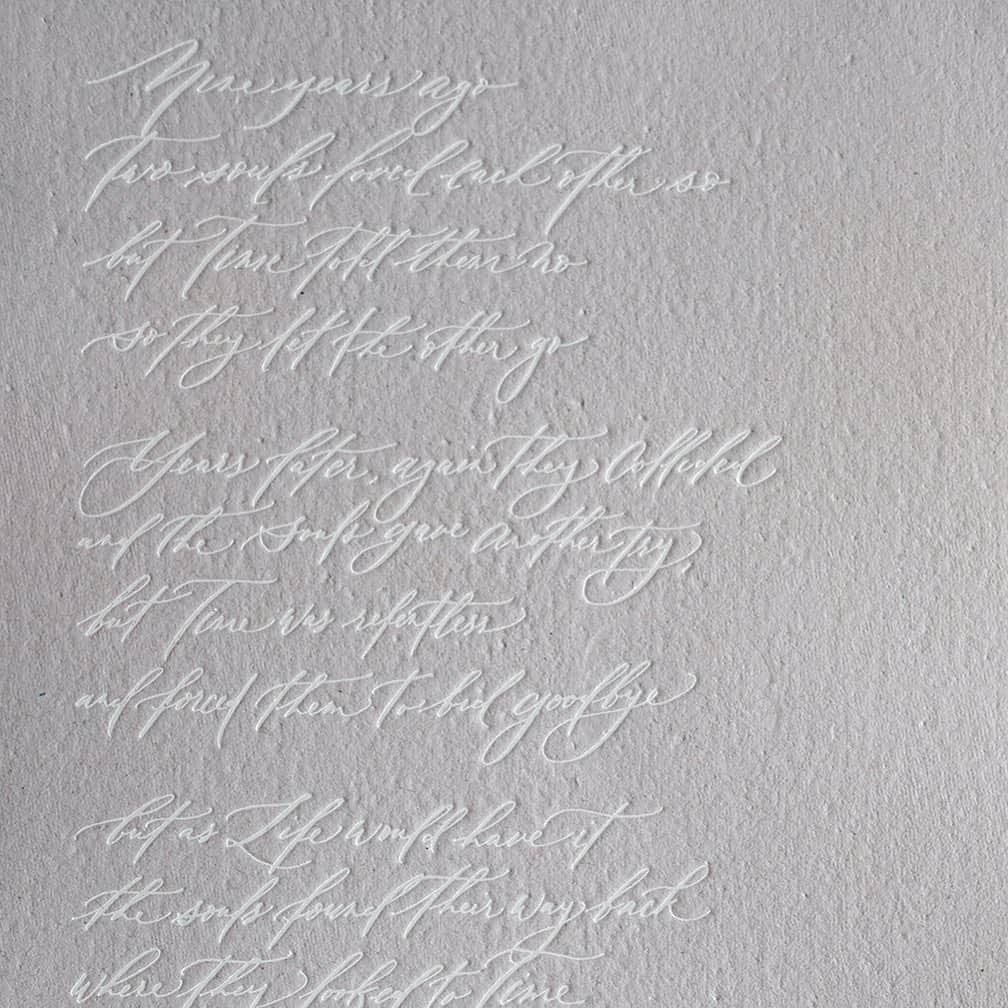 Nine years ago
Two souls loved each other so
but Time told them no
so they let the other go
Years later, again they collided
and the souls gave another try,
but Time was relentless
and forced them to bid goodbye
but as Life would have it
the souls found their way back
where they looked to Time